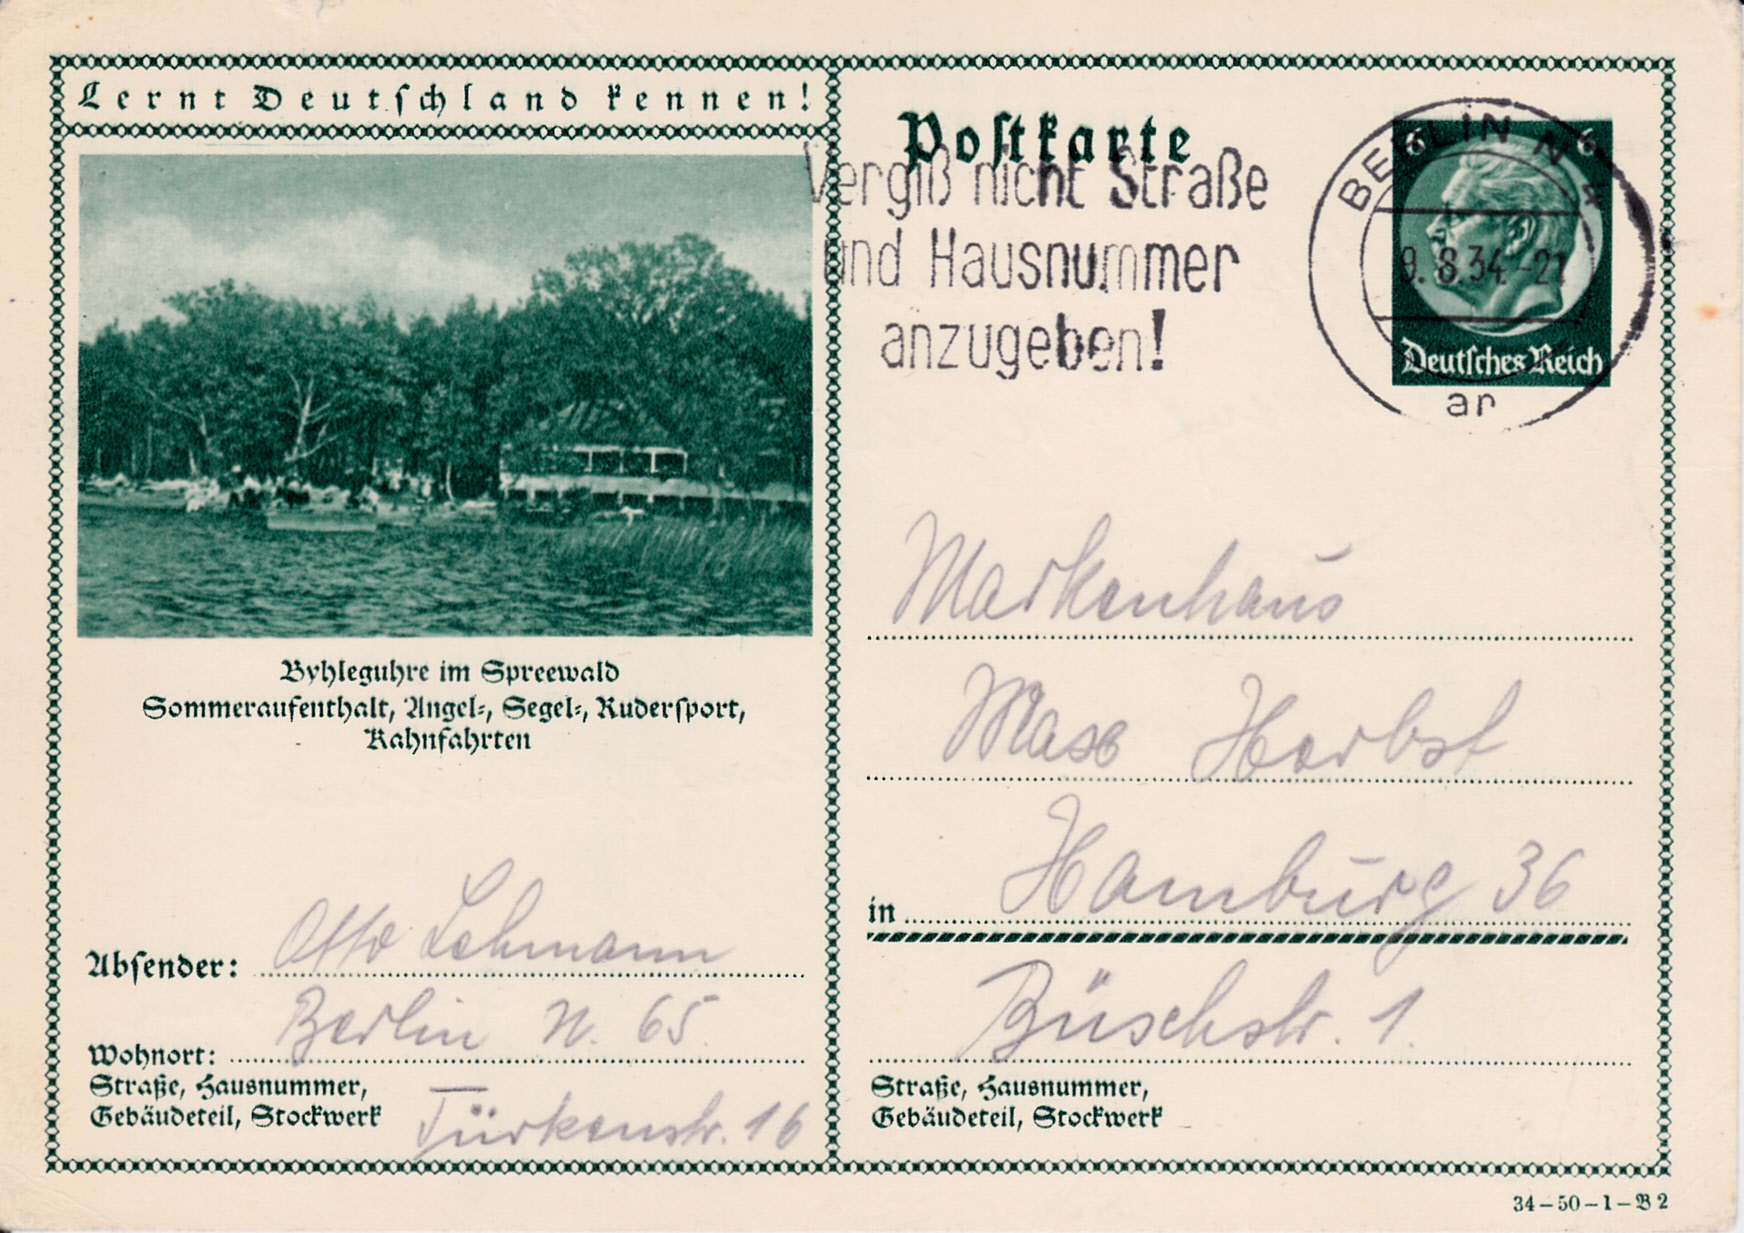 Lernt Deutschland kennen!
Byhleguhre im Spreewald
Sommeraufenthalt, Angel-, Segel-, Rudersport,
Kahnfahrten
Absender: Otto Lehmann
Wohnort: Berlin N. 65
Straße, Hausnummer,
Gebäudeteil, Stockwerk
Türkenstr. 16
Postkarte
Vergiß nicht Straße
und Hausnummer
anzugeben!
BERLIN N 4
9.8.34.-21
ar
6 6
Deutsches Reich
Markenhaus
Max Herbst
in Hamburg 36
Büschstr. 1.
Straße, Hausnummer,
Gebäudeteil, Stockwerk
34-50-1-B 2